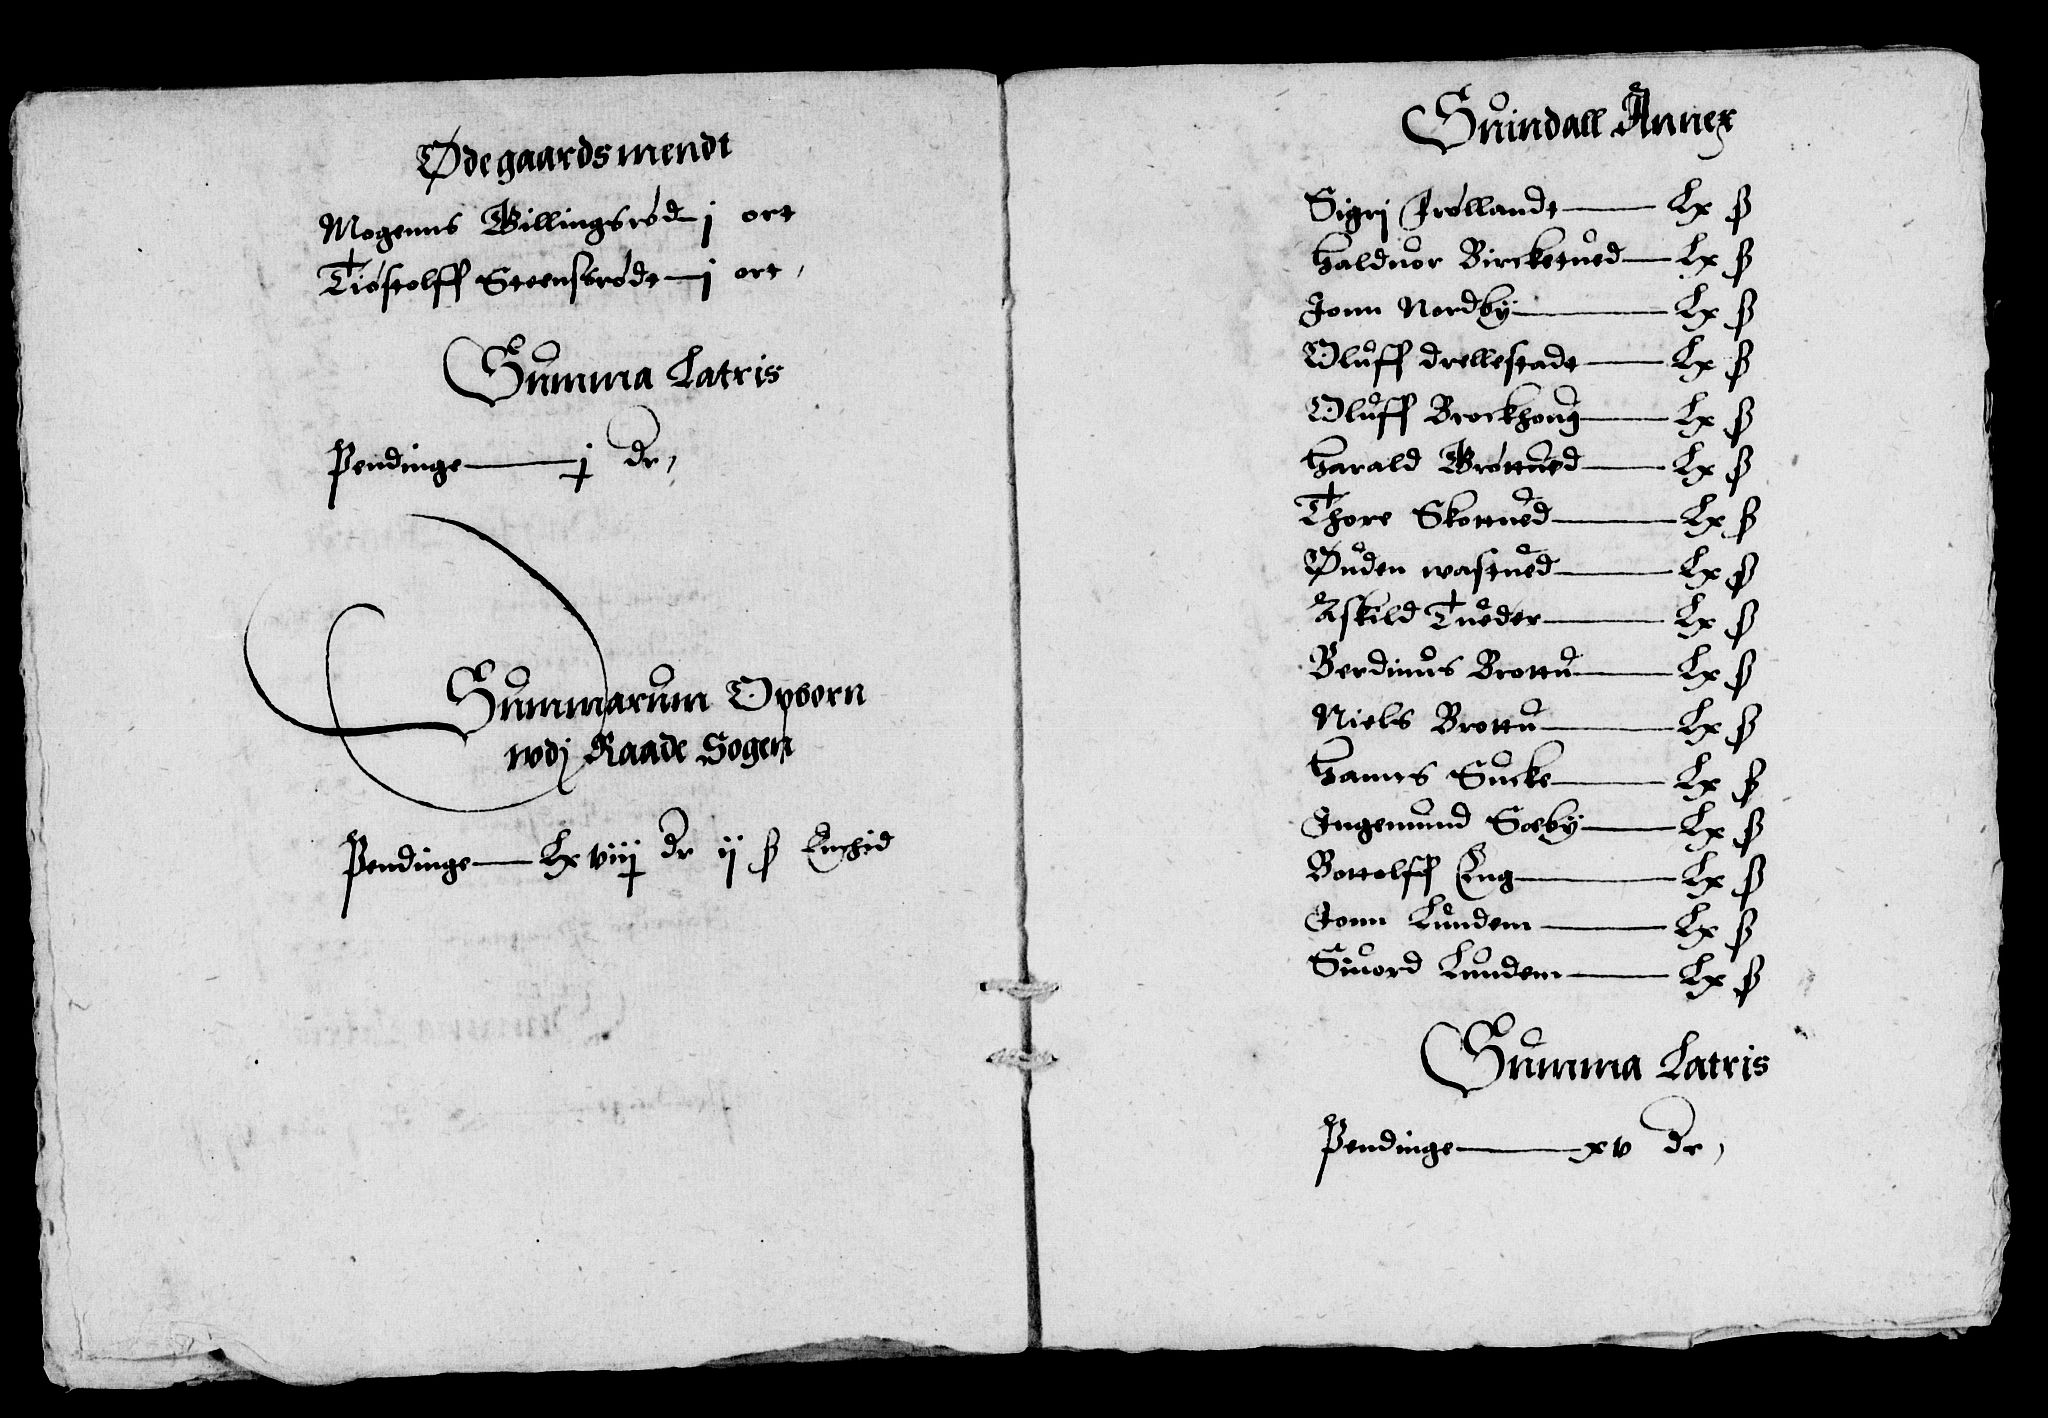 Ødegaardsmendt
Mogenns Billingsrød — j ort
Tiøstolff Steensrødt — j ort,
Summa Latris
Pendinge — j dr,
Summarum Opborn
wdj Raade Sogen
Pendinge — Lxviij dr ij ß
Suindall Annex
Sigrj Frøllandt — Lx ß
Halduor Bircketued — Lx ß
Jonn Nordby — Lx ß
Oluff drellestadt — Lx ß
Oluff Brockhoug — Lx ß
Harald Brøttued — Lx ß
Thore Skottued — Lx ß
Øuden wastued — Lx ß
Askild Tueder — Lx ß
Berdinus Brottu — Lx ß
Niels Brottu — Lx ß
Hanns Sucke — Lx ß
Ingemund Soeby — Lx ß
Bottolff Eng — Lx ß
Jonn Lundem — Lx ß
Siuord Lundem — Lx ß
Summa Latris
Pendinge — xv dr,